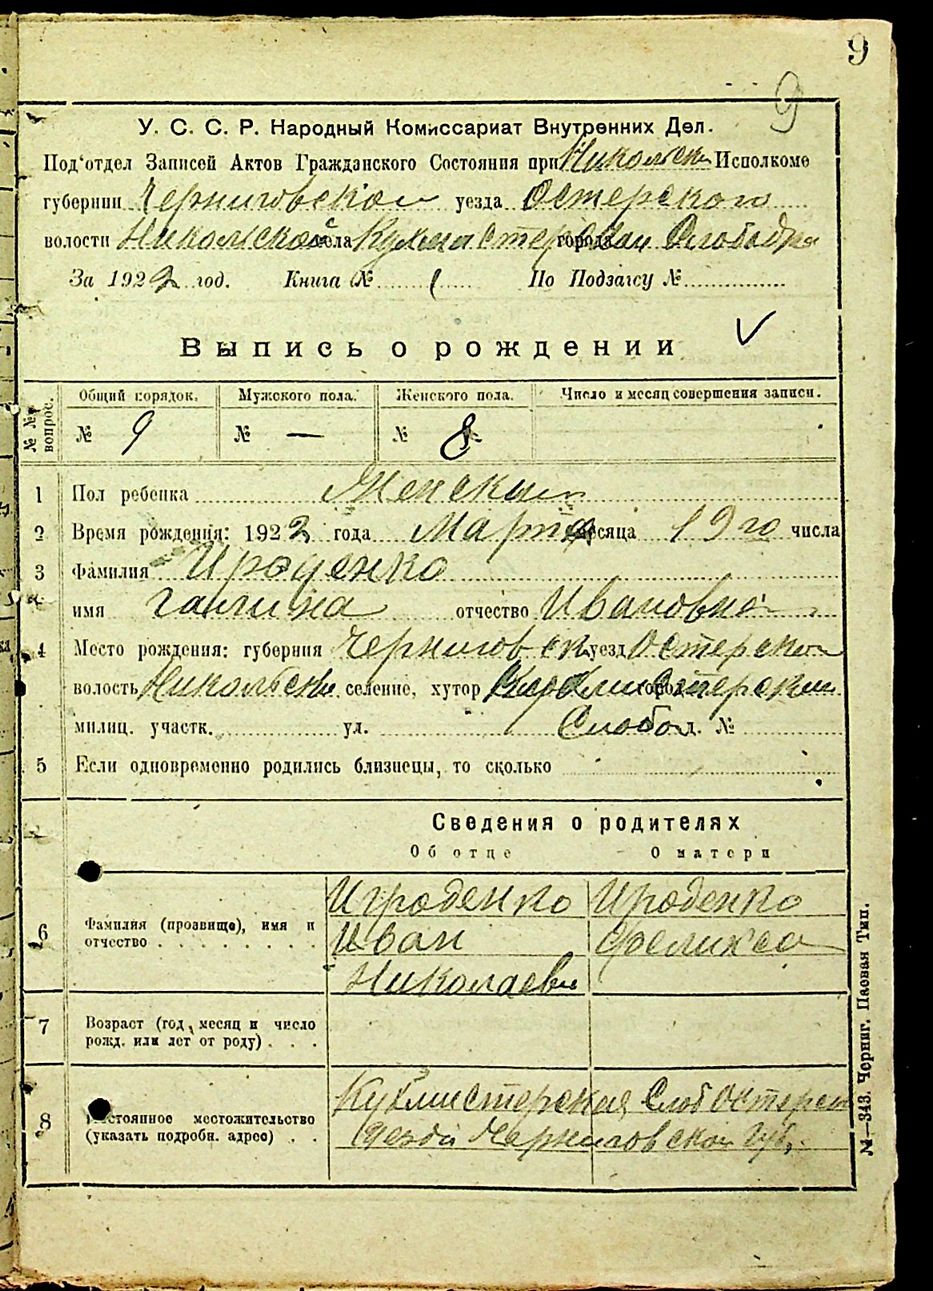 9
9
У. С. С. Р. Народный Комиссариат Внутренних Дел.
Под'отдел Записей Актов Гражданского Состояния при Никольск Исполкоме
губернии Черниговской уезда Остерского
волости Никольской села Кухмистерская города Слободка
За 1922 год. Книга № 1 По Подзагсу №
Выпись о рождении
№№ вопрос. Общий порядок. Мужского пола. Женского пола. Число и месяц совершения записи.
№ 9 № — № 8
1 Пол ребенка Женский
2 Время рождения: 1922 года Марта месяца 19го числа
3 Фамилия Ироденко
имя Галина отчество Ивановна
4 Место рождения: губерния Черниговск уезд Остерской
волость Никольск селение, хутор Кухмистерская
милиц. участк. ул. Слобод. №
5 Если одновременно родились близнецы, то сколько
Сведения о родителях
Об отце О матери
6 Фамилия (прозвище), имя и отчество
Ироденко Ироденко
Иван Феликса
Николаев
7 Возраст (год, месяц и число рожд. или лет от роду)
8 Постоянное местожительство (указать подробн. адрес)
Кухмистерская Слоб Остерск
уезда Черниговской Губ.
№—343. Черниг. Паевая Тип.